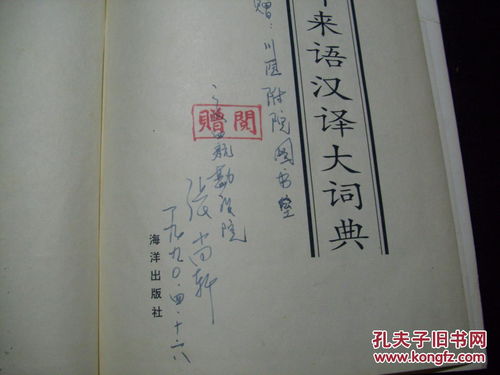 来语汉译大词典
赠：川医附院图书室
航勘设院
张
一九九〇.四.十六
赠阅
海洋出版社
孔夫子旧书网
www.kongfz.com